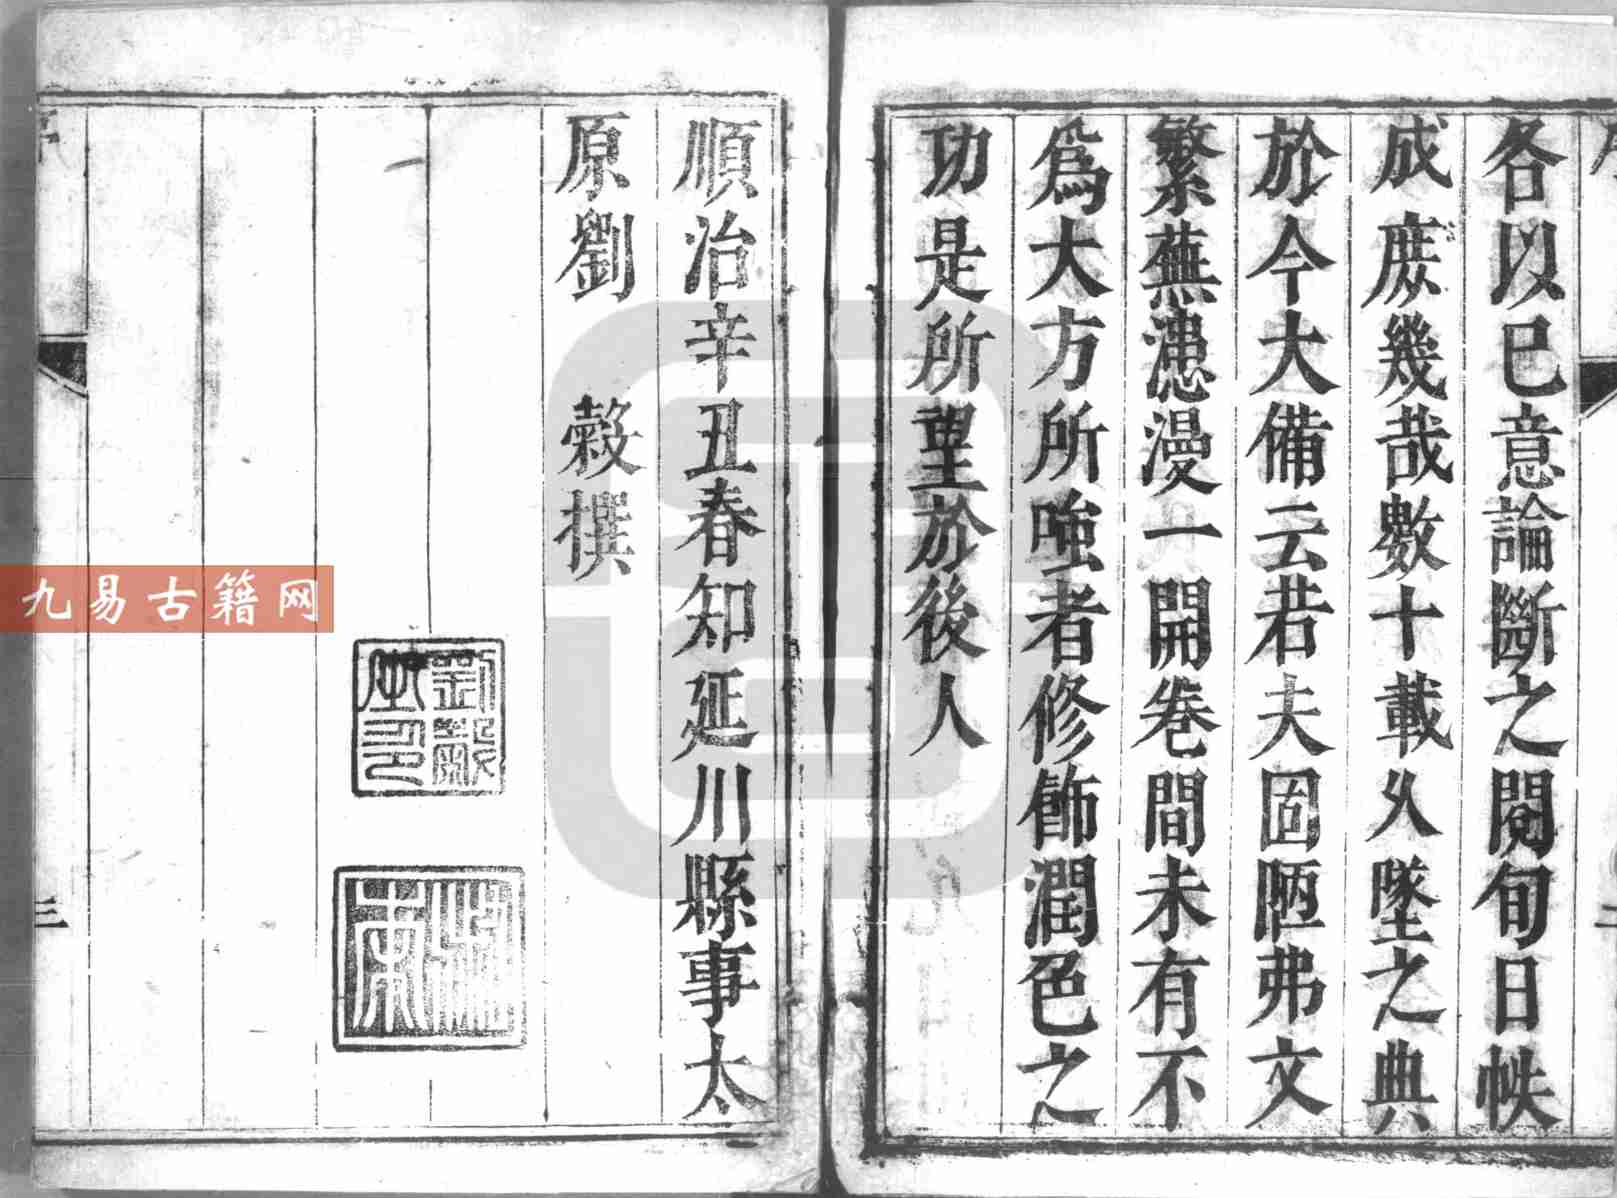 各以已意論斷之閱旬日帙
成庶幾哉數十載久墜之典
於今大備云若夫固陋弗文
繁蕪漶漫一開卷間未有不
爲大方所嗤者修飾潤色之
功是所望於後人
順治辛丑春知延川縣事太
原劉 穀撰
三
九易古籍网